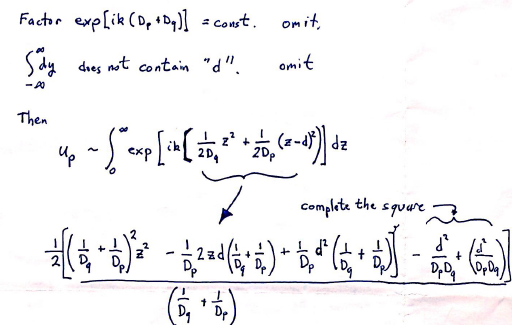 Factor exp[ik(Dp+Dq)] = const. omit.
∫_{-∞}^{∞} dy does not contain "d". omit
Then
u_p ~ ∫_0^∞ exp[ik[1/(2Dq) z² + 1/(2Dp) (z-d)²]] dz
complete the square
1/2[(1/Dq + 1/Dp)² z² - 1/Dp 2zd(1/Dq + 1/Dp) + 1/Dp d²(1/Dq + 1/Dp)] - d²/(DpDq) + (d²/(DpDq))]
(1/Dq + 1/Dp)